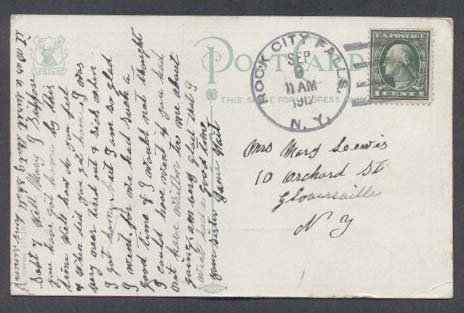 Post Card
THIS SPACE FOR ADDRESS
ROCK CITY FALLS.
SEP
11 AM
1912
N.Y.
U.S. POSTAGE
1 CENT 1
Mrs Mary Lewis
10 Orchard St
Gloversville
N Y
Sept 7 Well Mary I suppose
you have got home by this
time well how do you feel
& when did you get home I was
very near tired out & sick when
I got home but I am so glad
I went, for we had such a
good time & I would not thought
I could have went if you had
not have written to me about
going, am very glad that I
went had a good time
your sister